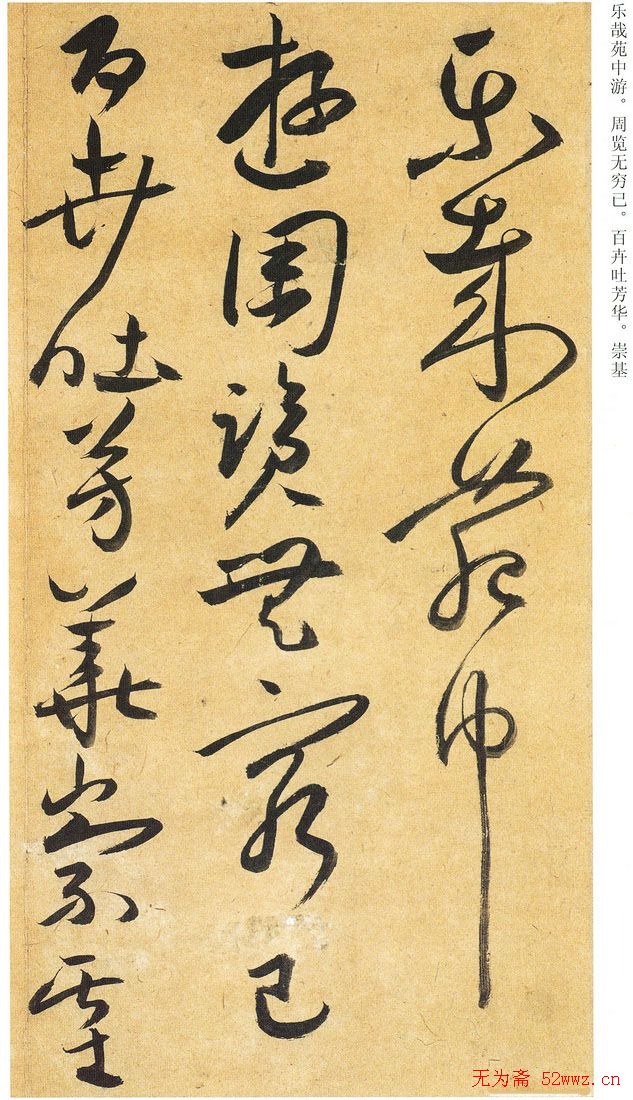 乐哉苑中游。周览无穷已。百卉吐芳华。崇基
樂哉苑中
遊周覽無窮已
百卉吐芳華崇基
无为斋 52wwz.cn